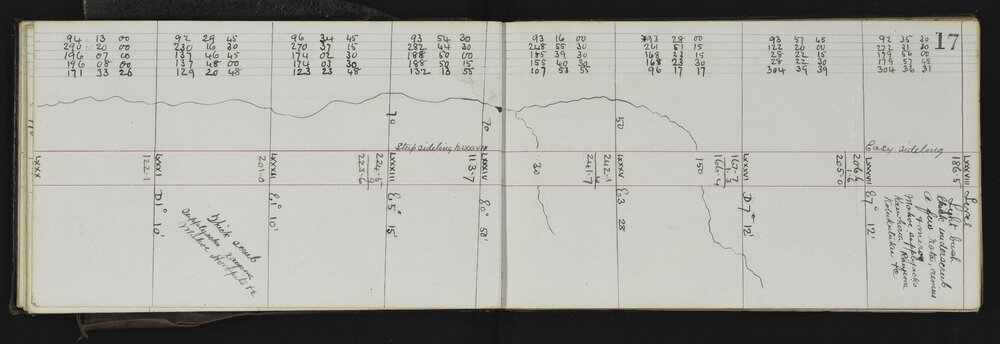 17
94 13 00
290 20 00
196 07 00
196 08 00
171 33 26
92 29 45
230 16 30
137 46 45
137 48 00
129 20 48
96 34 45
270 37 15
174 02 30
174 03 30
123 23 48
93 54 30
282 44 30
188 50 00
188 50 15
132 13 55
93 16 00
248 55 30
155 39 30
155 40 30
107 53 55
*93 28 00
261 51 15
168 23 15
168 23 30
96 17 17
93 57 45
122 20 00
28 22 15
28 22 30
304 39 39
92 35 30
272 31 30
179 56 00
179 57 45
304 36 31
110
70
70
50
Easy sideling
LXXX
122.1
LXXXI
201.0
LXXXII
223.6
224.5
.9
LXXXIII
113.7
LXXXIV
30
241.7
242.1
.4
LXXXV
150
166.4
167.7
1.3
LXXXVI
205.0
206.6
1.6
LXXXVII
186.5
LXXXVIII
D 1° 10'
E 1° 10'
E 5° 15'
E 0° 50'
E 3 28
D 7° 12'
E 7° 12'
Level
thick scrub
supplejacks
Mahoe
Light bush
thick underscrub
a few rata, rimus
miros
Mahoe supplejacks
Kotukutuku &c